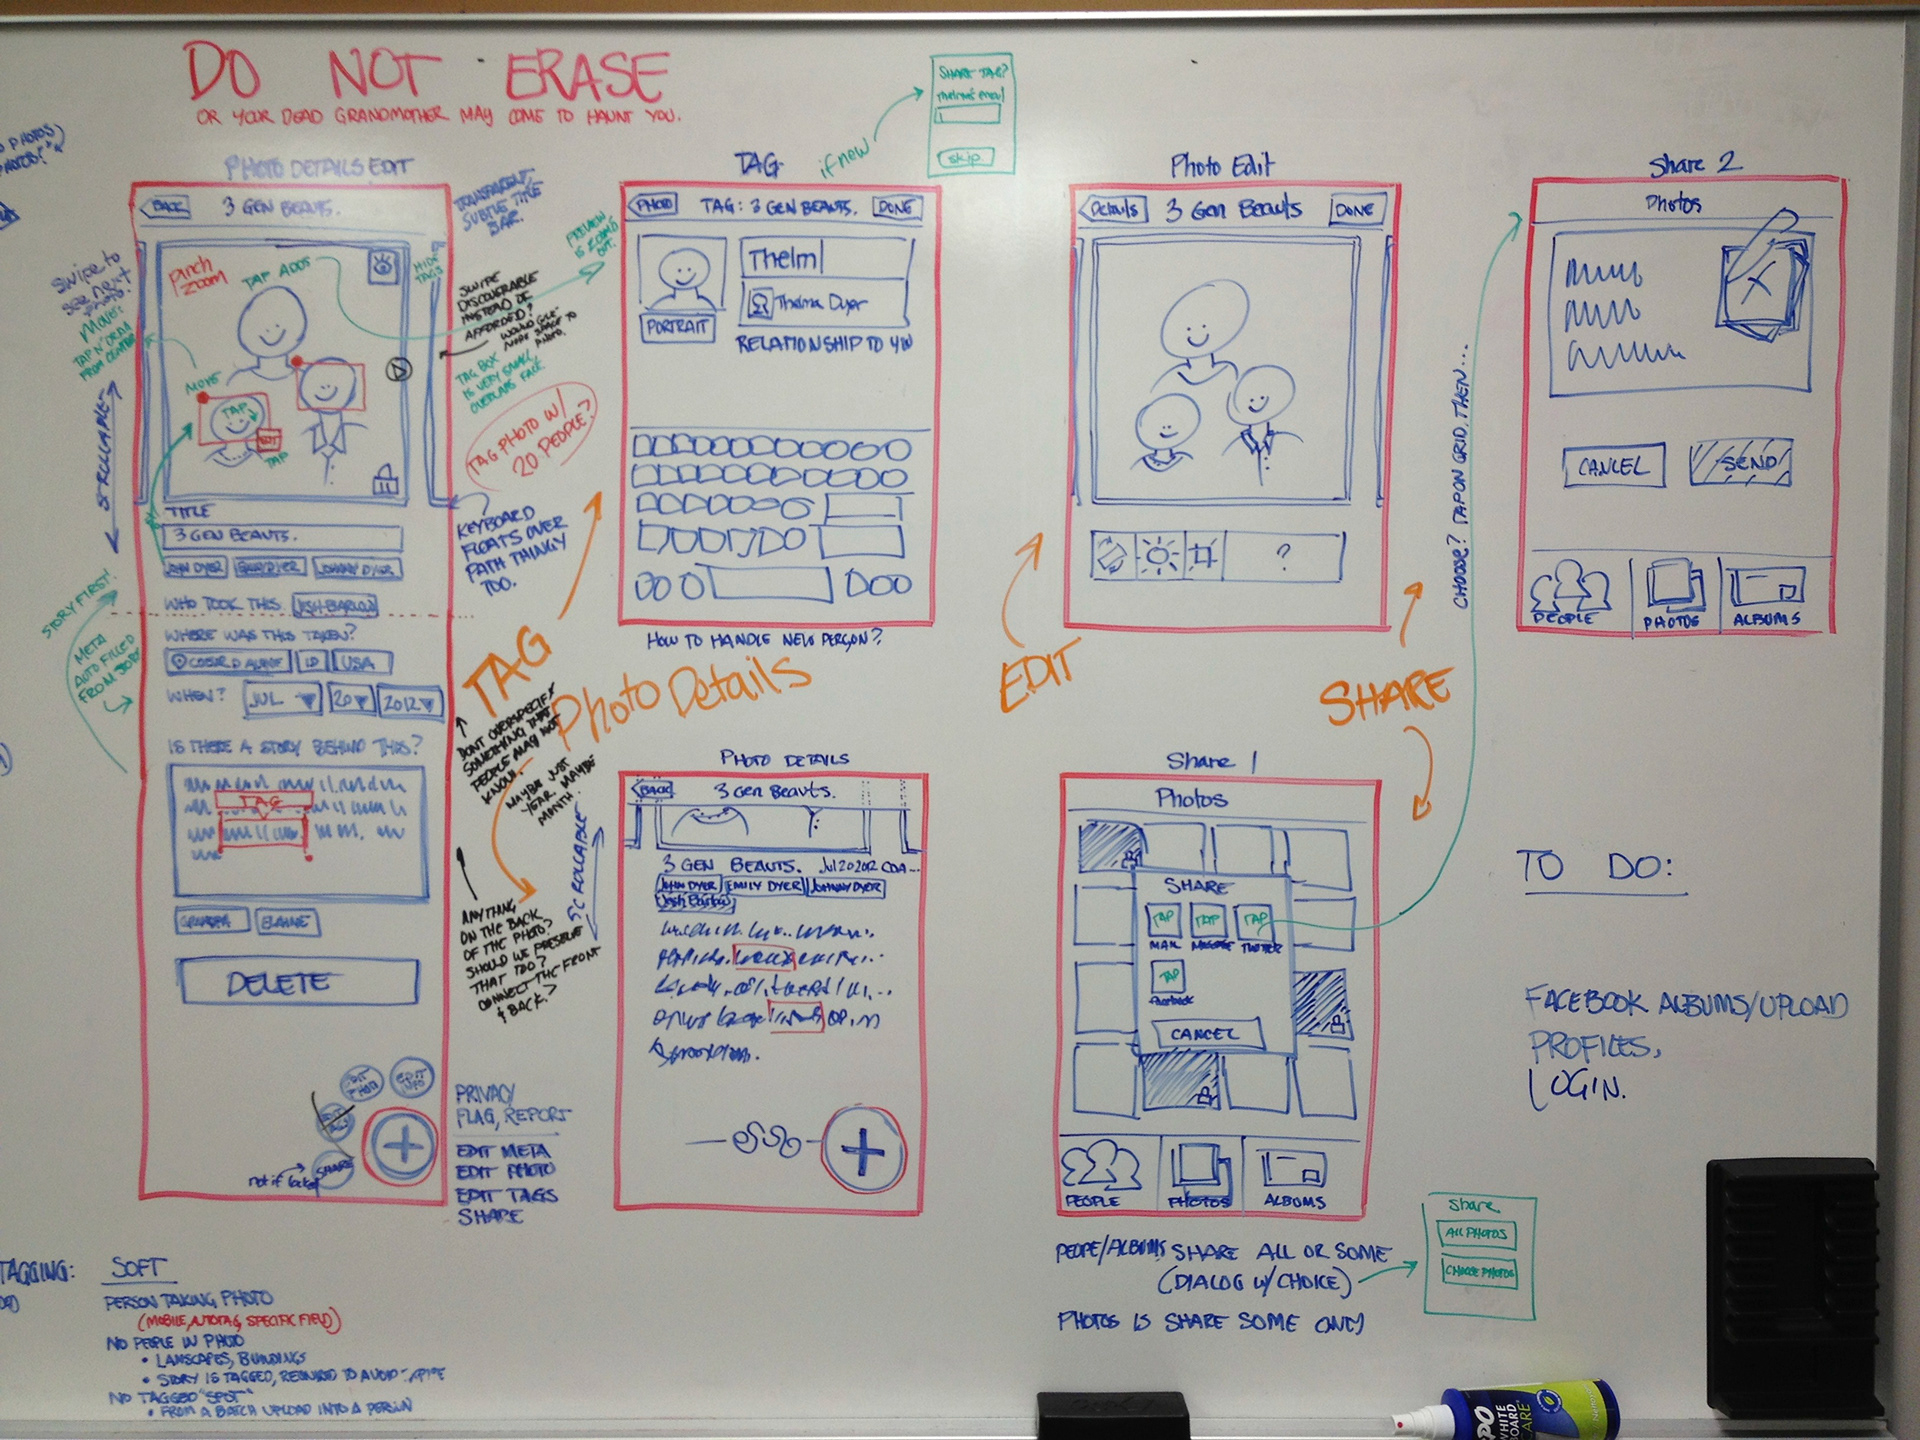 DO NOT ERASE
OR YOUR DEAD GRANDMOTHER MAY COME TO HAUNT YOU.
PHOTOS)
PHOTOS!"
SHARE TAG?
Thelma's email
skip
if new
PHOTO DETAILS EDIT
BACK
3 GEN BEAUTS.
TRANSPARENT,
SUBTLE TITLE
BAR.
Pinch
zoom
TAP ADDS
HIDE
TAGS
Swipe to
see next
photo!
MOVE:
FROM CENTER
MOVE
TAP
TAP
SCROLLABLE
SWIPE
DISCOVERABLE
INSTEAD OF
AFFORDED?
WOULD GIVE
MORE SPACE TO
PHOTO.
PREVIEW
IS ZOOMED
OUT.
TAG BOX
IS VERY SMALL
OVERLAPS FACE.
TAG PHOTO W/
20 PEOPLE?
KEYBOARD
FLOATS OVER
PATH THINGY
TOO.
TITLE
3 GEN BEAUTS.
JOHN DYER
EMILY DYER
JOHNNY DYER
WHO TOOK THIS.
JOSH BARLOW
WHERE WAS THIS TAKEN?
COEUR D ALENE
ID
USA
WHEN?
JUL
20
2012
IS THERE A STORY BEHIND THIS?
TAG
GRANDPA
ELAINE
DELETE
STORY FIRST!
META
AUTO FILLED
FROM
EDIT
PHOTO
EDIT
SHARE
not if locked
PRIVACY
FLAG, REPORT
EDIT META
EDIT PHOTO
EDIT TAGS
SHARE
TAG
DONT OVERSPECIFY
SOMETHING THAT
PEOPLE MAY NOT
KNOW.
MAYBE JUST
YEAR. MAYBE
MONTH.
ANYTHING
ON THE BACK
OF THE PHOTO?
SHOULD WE PRESERVE
THAT TOO?
CONNECT THE FRONT
& BACK?
TAG
PHOTO
TAG: 3 GEN BEAUTS.
DONE
Thelm
Thelma Dyer
PORTRAIT
RELATIONSHIP TO YOU
HOW TO HANDLE NEW PERSON?
Photo Details
PHOTO DETAILS
BACK
3 Gen Beauts.
3 GEN BEAUTS. Jul 20 2012 CDA...
JOHN DYER
EMILY DYER
JOHNNY DYER
Josh Barlow
SCROLLABLE
Photo Edit
Details
3 Gen Beauts
DONE
?
EDIT
SHARE
Share 1
Photos
SHARE
TAP
TAP
TAP
MAIL
MESSAGE
TWITTER
TAP
facebook
CANCEL
PEOPLE
PHOTOS
ALBUMS
PEOPE/ALBUMS SHARE ALL OR SOME
(DIALOG W/ CHOICE)
PHOTOS IS SHARE SOME ONLY
Share
ALL PHOTOS
CHOOSE PHOTOS
CHOOSE? TAP ON GRID, THEN...
Share 2
Photos
CANCEL
SEND
PEOPLE
PHOTOS
ALBUMS
TO DO:
FACEBOOK ALBUMS/UPLOAD
PROFILES,
LOGIN.
TAGGING:
SOFT
PERSON TAKING PHOTO
(MOBILE, AUTOTAG, SPECIFIC FIELD)
NO PEOPLE IN PHOTO
• LANSCAPES, BUILDINGS
• STORY IS TAGGED, REQUIRED TO AVOID
NO TAGGED "SPOT"
• FROM A BATCH UPLOAD INTO A PERSON
WHITE
BOARD
CARE